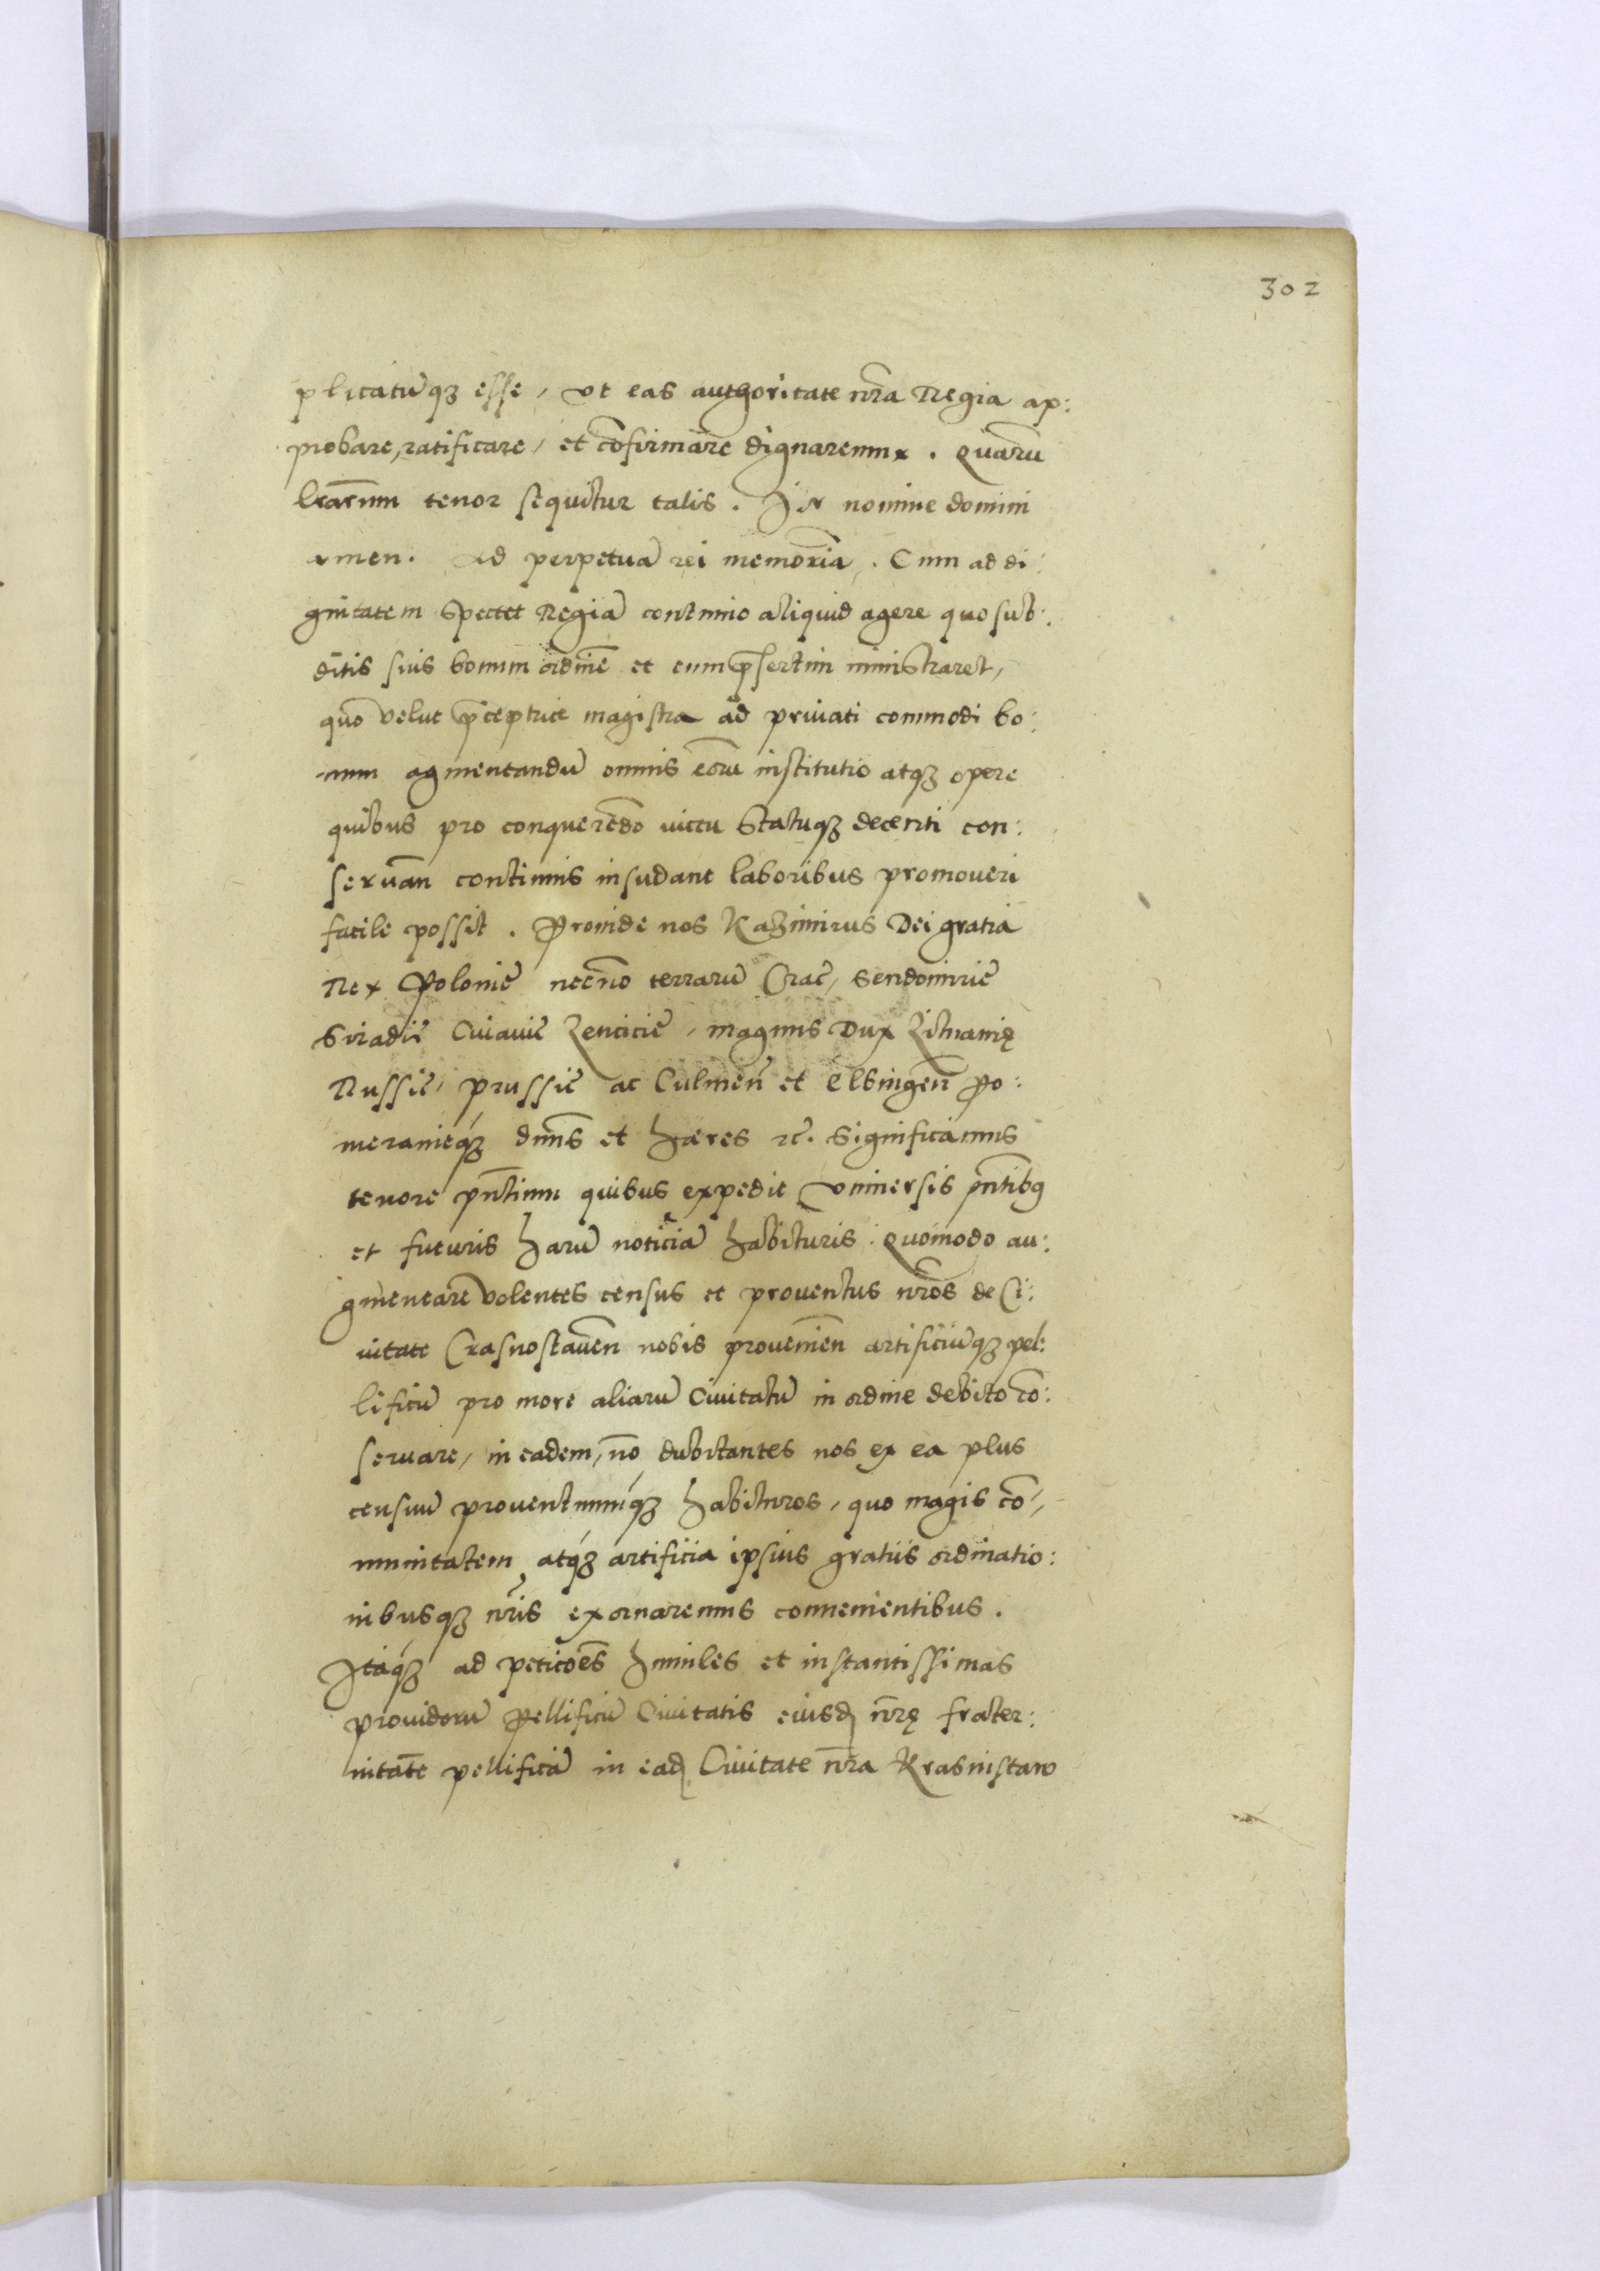 302
plicatūq₃ esse, vt eas authoritate nr̄a Regia ap:
probare, ratificare, et cōfirmare dignaremur. Quarū
lrarum tenor sequitur talis. In nomine domini
amen. Ad perpetuā rei memoriā. Cum ad di:
gnitatem spectet Regiā continuo aliquid agere quo sub:
ditis suis bonum ordinē et eum p̄sertim ministraret,
quo velut p̄ceptrice magistra ad priuati commodi bo:
num agmentandū omnis eorū institutio atq₃ opere
quibus pro conquerēdo victu statuq₃ decenti con:
seruan̄ continuis insudant laboribus promoveri
facile possit. Proinde nos Kazimirus Dei gratia
Rex Polonie necno terrarū Crac̄, Sendomirie
Siradie Cuiauie Lencicie, magnus Dux Lithuanię
Russie, prussie ac Culmen̄ et Elbingen̄ Po:
meranieq₃ dnn̄s et hæres rc̄. Significamus
tenore pn̄tium quibus expedit vniuersis pn̄tibq
et futuris harū noticiā habituris. Quomodo au:
gmentare volentes census et proventus nr̄os de Ci:
uitate Crasnostauen̄ nobis provenien̄ artificiūq₃ pel:
lificū pro more aliarū Ciuitatū in ordine debito cō:
seruare, in eadem, nō dubitantes nos ex ea plus
censuū proventuumq₃ habituros, quo magis cō,
munitatem atq₃ artificia ipsius gratiis ordinatio:
nibusq₃ nr̄is exornaremus conuenientibus.
Itaq₃ ad peticōes humiles et instantissimas
prouidorū Pellificū Ciuitatis eiusd̄ nr̄ę frater:
nitatē pellificū in ead̄ Ciuitate nr̄a Krasnistaw